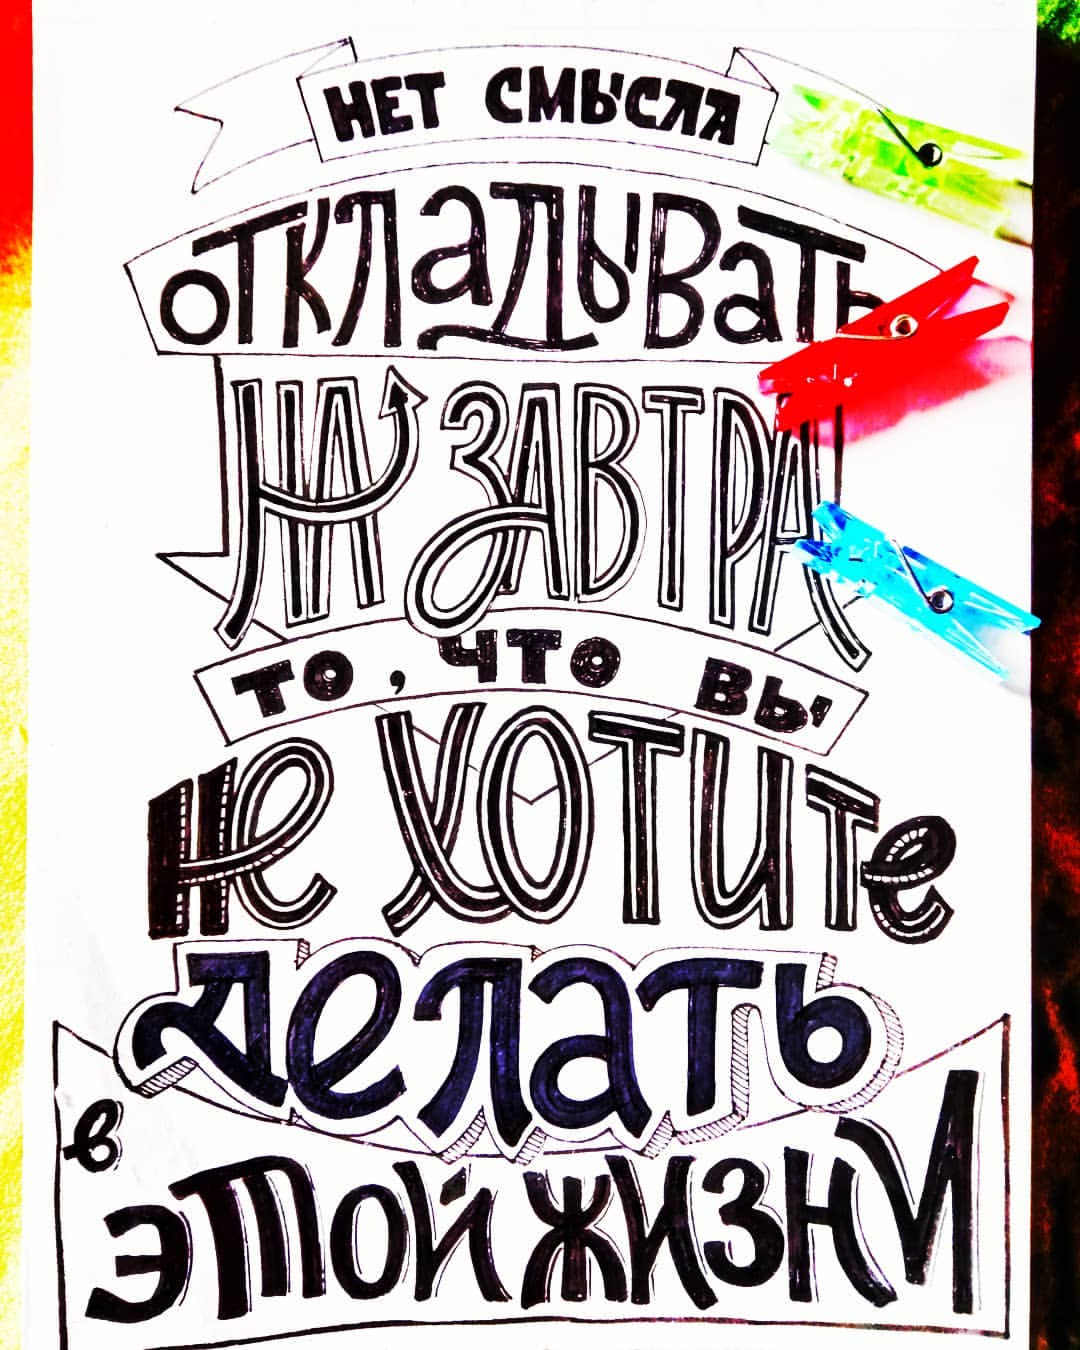 НЕТ СМЫСЛА
ОТКЛАДЫВАТЬ
НА ЗАВТРА
ТО, ЧТО ВЫ
НЕ ХОТИТЕ
ДЕЛАТЬ
В
ЭТОЙ ЖИЗНИ